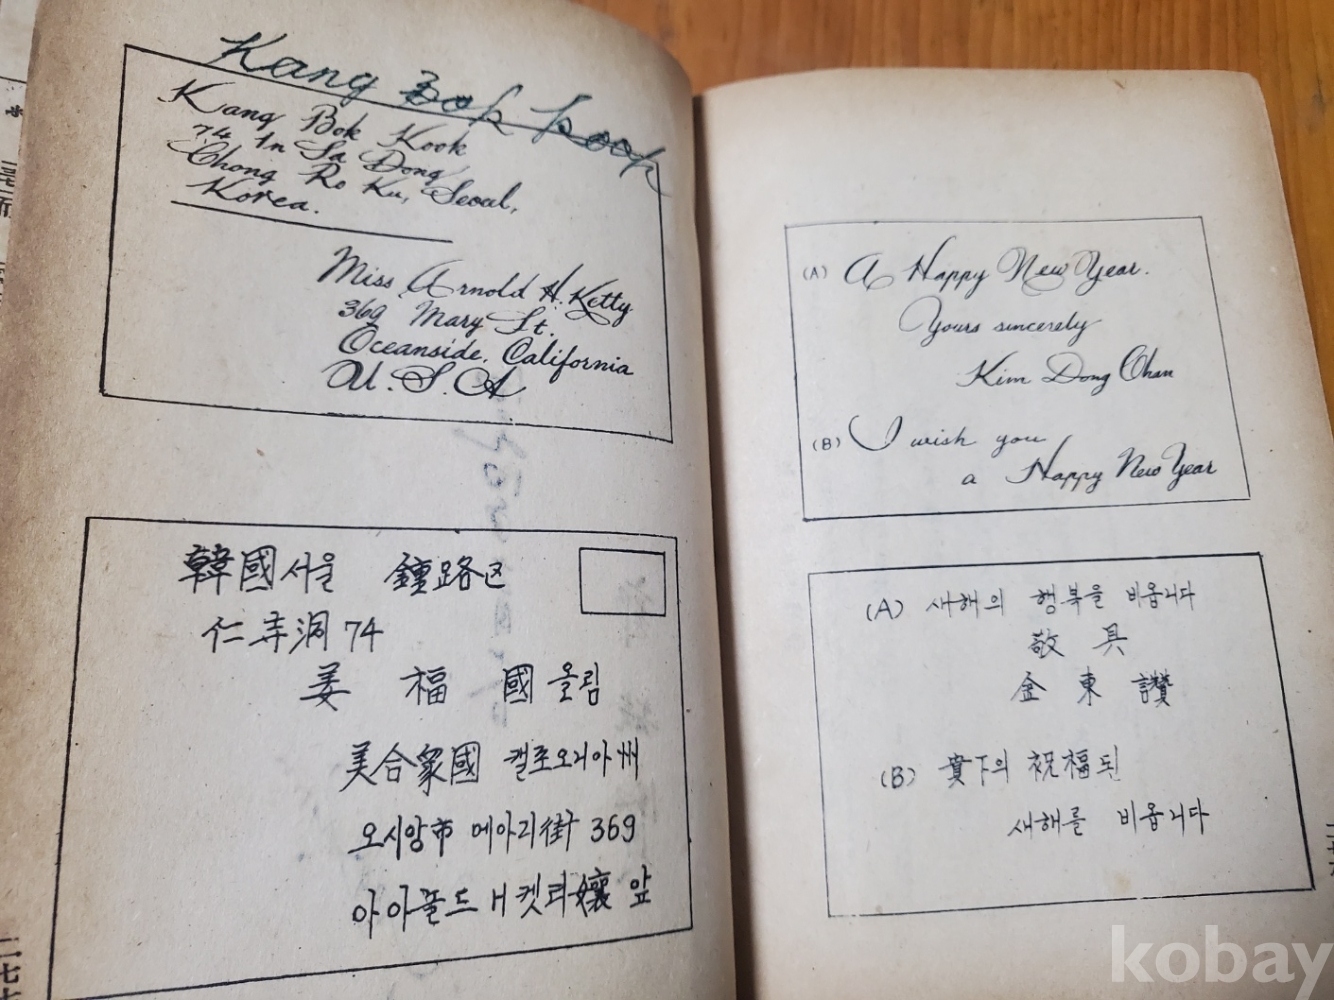 Kang Bok Kook
Kang Bok Kook
74 In Sa Dong
Chong Ro Ku, Seoul,
Korea.
Miss Arnold H. Ketty
369 Mary St.
Oceanside, California
U.S.A
韓國서울 鐘路区
仁寺洞 74
姜福國 올림
美合衆國 캘로오리아州
오시앙市 메아리街 369
아아놀드 H 켓티孃 앞
(A) A Happy New Year.
Yours sincerely
Kim Dong Chan
(B) I wish you
a Happy New Year
(A) 새해의 행복을 비옵니다
敬具
金東讚
(B) 貴下의 祝福된
새해를 비옵니다
kobay